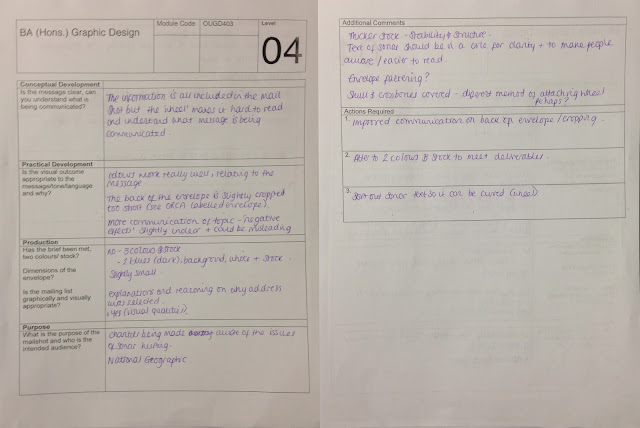 BA (Hons.) Graphic Design
Module Code
OUGD403
Level
04
Conceptual Development
Is the message clear, can
you understand what is
being communicated?
The information is all included in the mail
shot but the 'wheel' makes it hard to read
and understand what message is being
communicated.
Practical Development
Is the visual outcome
appropriate to the
message/tone/language
and why?
colours work really well, relating to the
message
The back of the envelope is slightly cropped
too short (see ORCA labelled envelope).
More communication of topic - 'negative
effects' slightly unclear + could be misleading
Production
Has the brief been met,
two colours/ stock?
Dimensions of the
envelope?
Is the mailing list
graphically and visually
appropriate?
no - 3 colours & stock
- 2 blues (dark), background, white + stock.
Slightly small
explanations and reasoning on why address
was selected.
yes (visual quality).
Purpose
What is the purpose of the
mailshot and who is the
intended audience?
charities being made aware of the issues
of sonar
National Geographic
Additional Comments
Thicker stock - Stability & Structure.
Text of sonar should be in a circle for clarity + to make people
aware / easier to read.
Envelope patterning?
Skull & crossbones covered - different method of attaching wheel
perhaps?
Actions Required
1. Improved communication on back of envelope / cropping.
2. Refer to 2 colours & stock to meet deliverables.
3. Sort out sonar text so it can be curved (wheel)